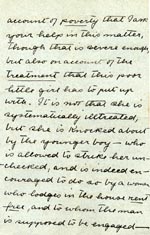 account of poverty that I am
your help in this matter,
though that is severe enough,
but also on account of the
treatment that this poor
little girl has to put up
with. It is not that she is
systematically illtreated,
but she is knocked about
by the younger boy – who
is allowed to strike her un-
checked, and is indeed en-
couraged to do so by a woman
who lodges in the house rent
free, and to whom the man
is supposed to be engaged –